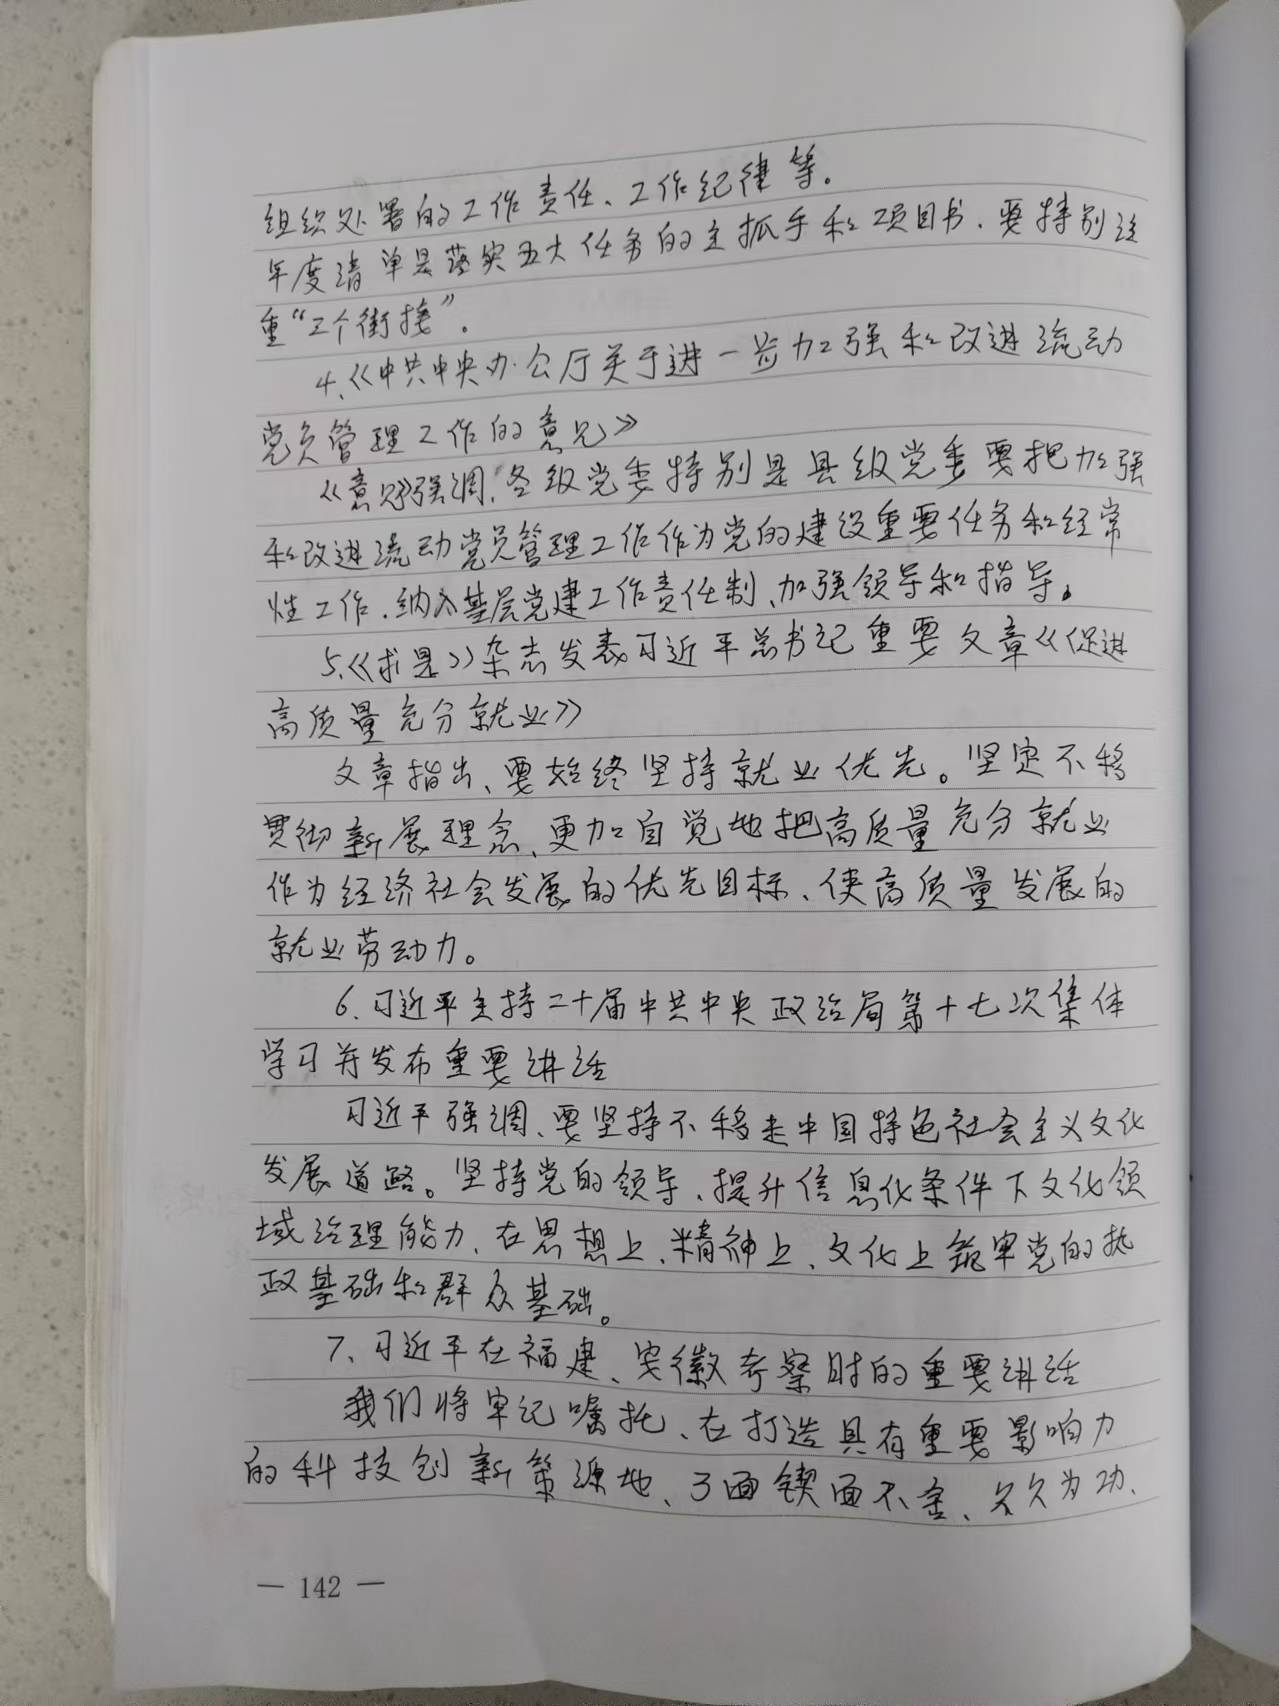 组织处署的工作责任、工作纪律等。
年度清单是落实五大任务的主抓手和项目书、要特别注
重“三个衔接”。
4.《中共中央办公厅关于进一步加强和改进流动
党员管理工作的意见》
《意见》强调,各级党委特别是县级党委要把加强
和改进流动党员管理工作作为党的建设重要任务和经常
性工作、纳入基层党建工作责任制、加强领导和指导。
5.《求是》杂志发表习近平总书记重要文章《促进
高质量充分就业》
文章指出、要始终坚持就业优先。坚定不移
贯彻新展理念、更加自觉地把高质量充分就业
作为经济社会发展的优先目标、使高质量发展的
就业劳动力。
6.习近平主持二十届中共中央政治局第十七次集体
学习并发布重要讲话
习近平强调、要坚持不移走中国特色社会主义文化
发展道路。坚持党的领导、提升信息化条件下文化领
域治理能力、在思想上、精神上、文化上筑牢党的执
政基础和群众基础。
7、习近平在福建、安徽考察时的重要讲话
我们将牢记嘱托、在打造具有重要影响力
的科技创新策源地、了面锲面不舍、久久为功、
— 142 —